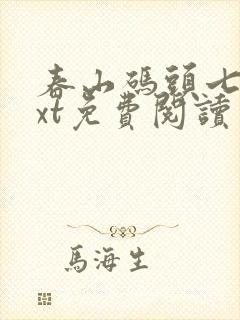 春山碼頭七
xt免費閱讀
馬海生